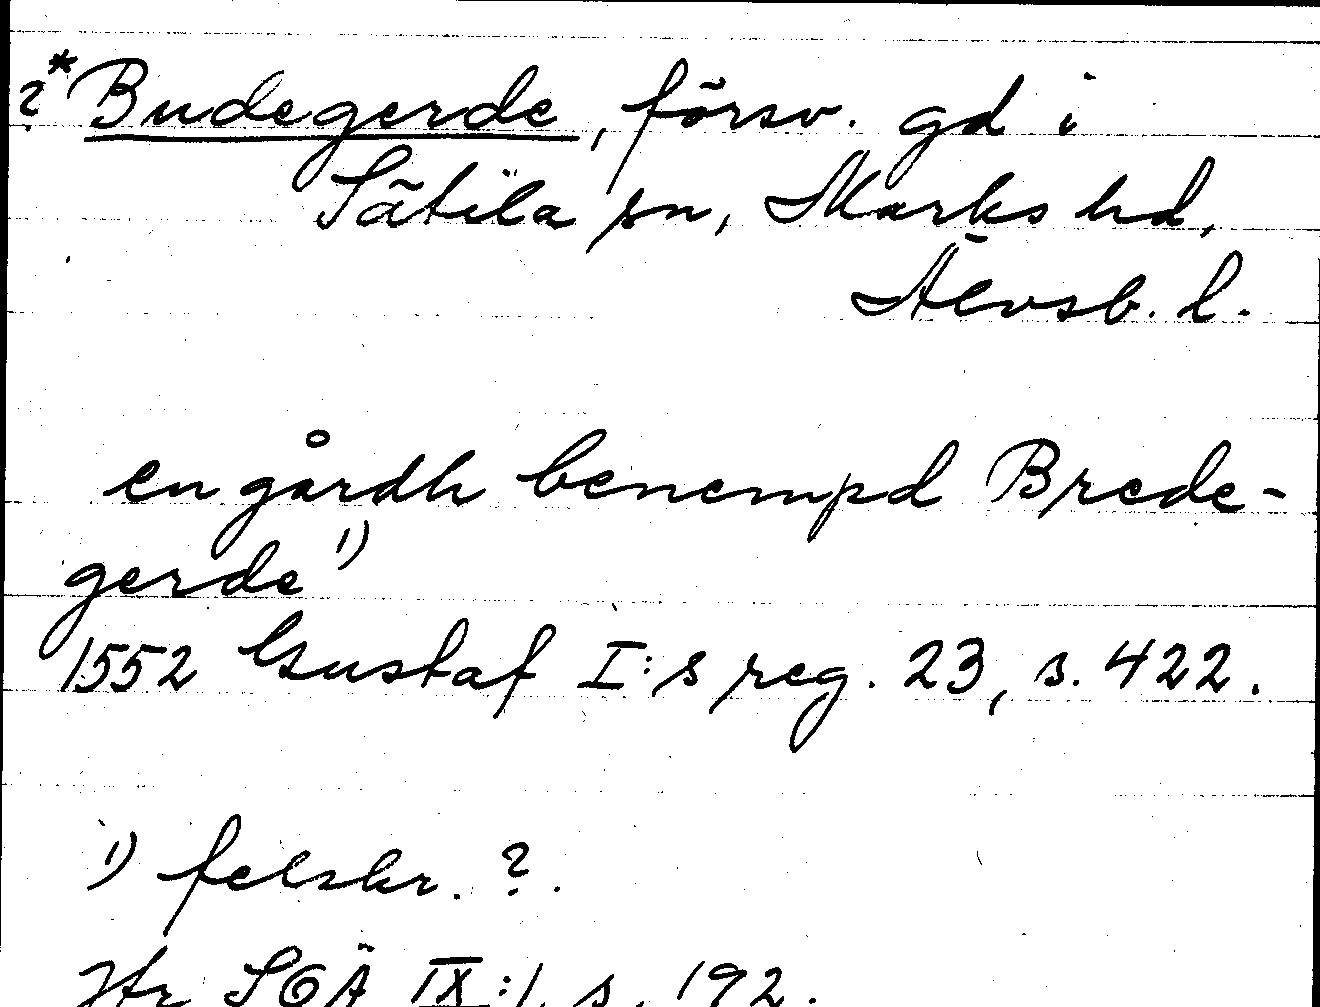 ?* Budegerde, försv. gd i
Sätila sn, Marks hd,
Älvsb. l.
en gårdh benempd Brede-
gerde 1)
1552 Gustaf I:s reg. 23, s. 422.
1) felskr. ?.
Jfr SOÄ IX:1 s. 192.